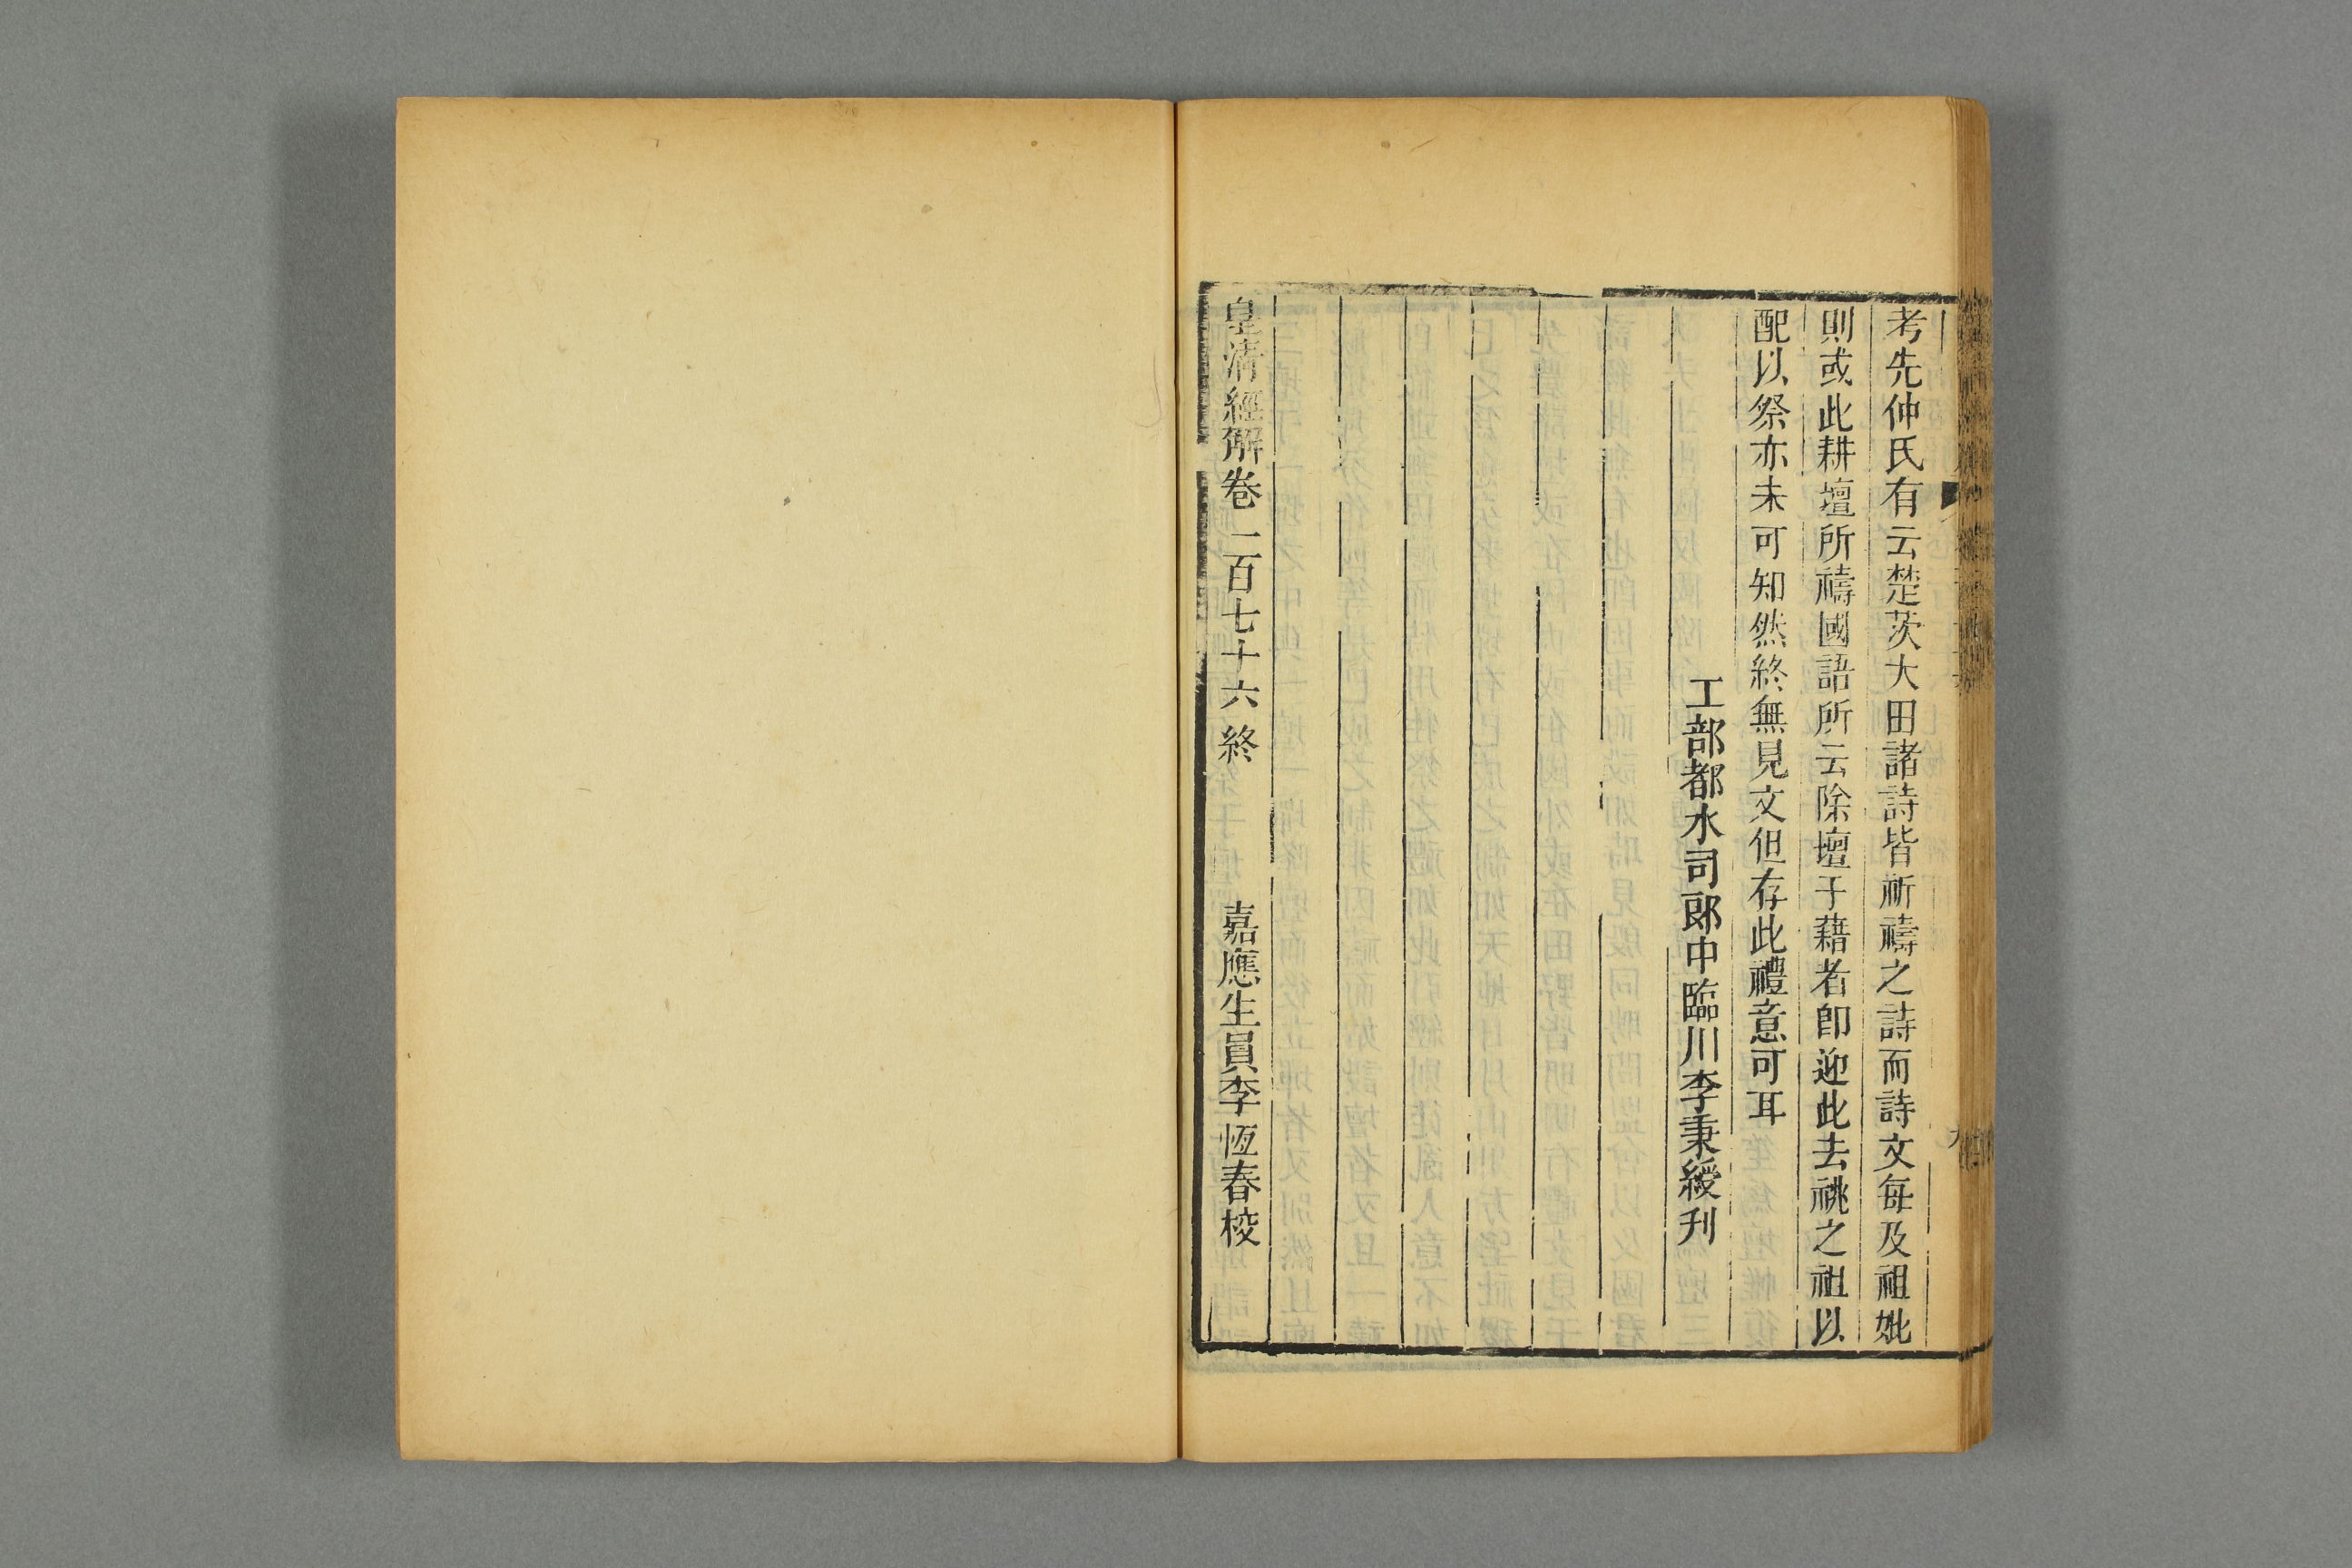 考先仲氏有云楚茨大田諸詩皆祈禱之詩而詩文每及祖妣
則或此耕壇所禱國語所云除壇于藉者卽迎此去祧之祖以
配以祭亦未可知然終無見文但存此禮意可耳
工部都水司郞中臨川李秉綬刋
皇淸經解卷一百七十六終　嘉應生員李恆春校